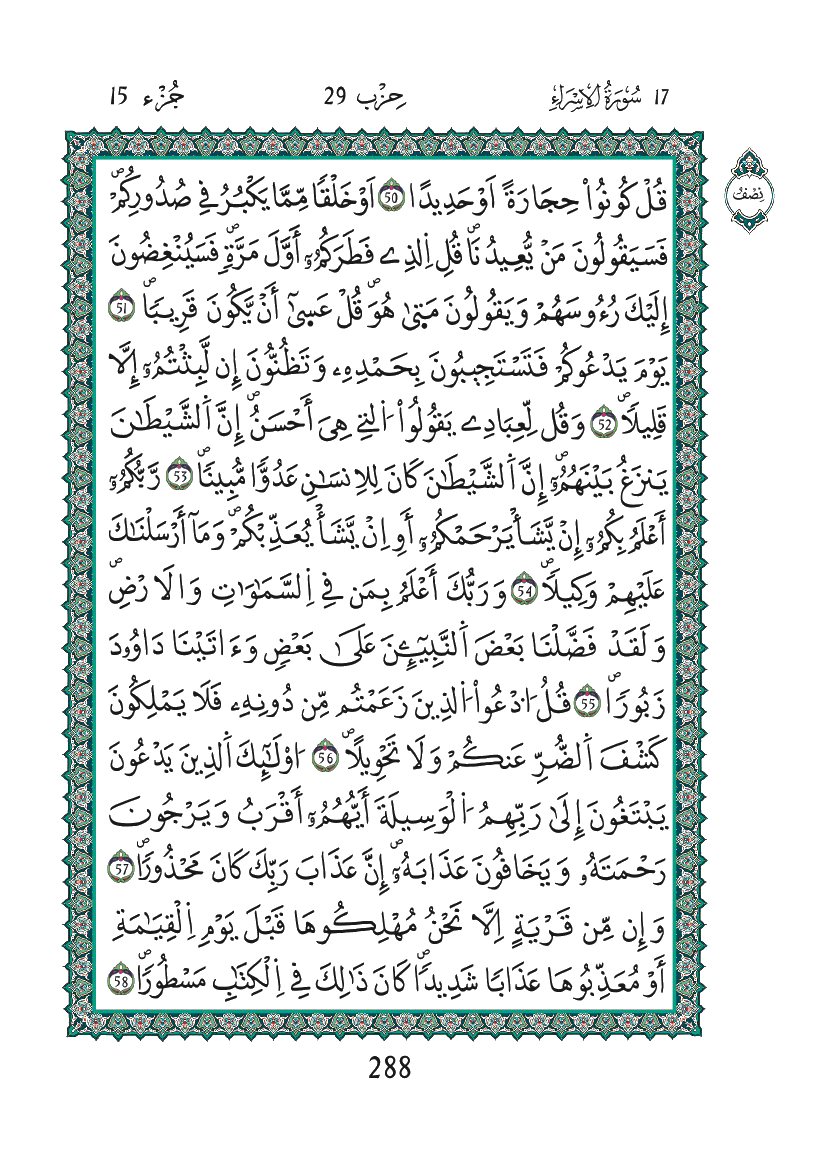 17 سُورَةُ الِاسْرَاءِ
حِزْب 29
جُزْء 15
نِصْفُ
قُلْ كُونُواْ حِجَارَةً اَوْ حَدِيدًا 50 اَوْ خَلْقًا مِّمَّا يَكْبُرُ فِے صُدُورِكُمْۖ
فَسَيَقُولُونَ مَنْ يُّعِيدُنَاۖ قُلِ اِلذِے فَطَرَكُمُۥٓ أَوَّلَ مَرَّةٖۖ فَسَيُنْغِضُونَ
إِلَيْكَ رُءُوسَهُمْ وَيَقُولُونَ مَتٜىٰ هُوَۖ قُلْ عَسٜىٰٓ أَنْ يَّكُونَ قَرِيبٗاۖ 51
يَوْمَ يَدْعُوكُمْ فَتَسْتَجِيبُونَ بِحَمْدِهِۦ وَتَظُنُّونَ إِن لَّبِثْتُمُۥٓ إِلَّا
قَلِيلٗاۖ 52 وَقُل لِّعِبَادِے يَقُولُواْ اُ۬لتِے هِيَ أَحْسَنُۖ إِنَّ اَ۬لشَّيْطَٰنَ
يَنزَغُ بَيْنَهُمُۥٓۖ إِنَّ اَ۬لشَّيْطَٰنَ كَانَ لِلِانسَٰنِ عَدُوّٗا مُّبِينٗاۖ 53 رَّبُّكُمُۥٓ
أَعْلَمُ بِكُمُۥٓ إِنْ يَّشَأْ يَرْحَمْكُمُۥٓ أَوِ اِنْ يَّشَأْ يُعَذِّبْكُمْۖ وَمَآ أَرْسَلْنَٰكَ
عَلَيْهِمْ وَكِيلٗاۖ 54 وَرَبُّكَ أَعْلَمُ بِمَن فِے اِ۬لسَّمَٰوَٰتِ وَالَارْضِۖ
وَلَقَدْ فَضَّلْنَا بَعْضَ اَ۬لنَّبِيٓـِٕۧنَ عَلَىٰ بَعْضٖ وَءَاتَيْنَا دَاوُۥدَ
زَبُورٗاۖ 55 قُلُ اُ۟دْعُواْ اُ۬لذِينَ زَعَمْتُم مِّن دُونِهِۦ فَلَا يَمْلِكُونَ
كَشْفَ اَ۬لضُّرِّ عَنكُمْ وَلَا تَحْوِيلًاۖ 56 اُوْلَٰٓئِكَ اَ۬لذِينَ يَدْعُونَ
يَبْتَغُونَ إِلَىٰ رَبِّهِمُ اُ۬لْوَسِيلَةَ أَيُّهُمُۥٓ أَقْرَبُ وَيَرْجُونَ
رَحْمَتَهُۥ وَيَخَافُونَ عَذَابَهُۥٓۖ إِنَّ عَذَابَ رَبِّكَ كَانَ مَحْذُورٗاۖ 57
وَإِن مِّن قَرْيَةٍ اِلَّا نَحْنُ مُهْلِكُوهَا قَبْلَ يَوْمِ اِ۬لْقِيَٰمَةِ
أَوْ مُعَذِّبُوهَا عَذَابٗا شَدِيدٗاۖ كَانَ ذَٰلِكَ فِے اِ۬لْكِتَٰبِ مَسْطُورٗاۖ 58
288